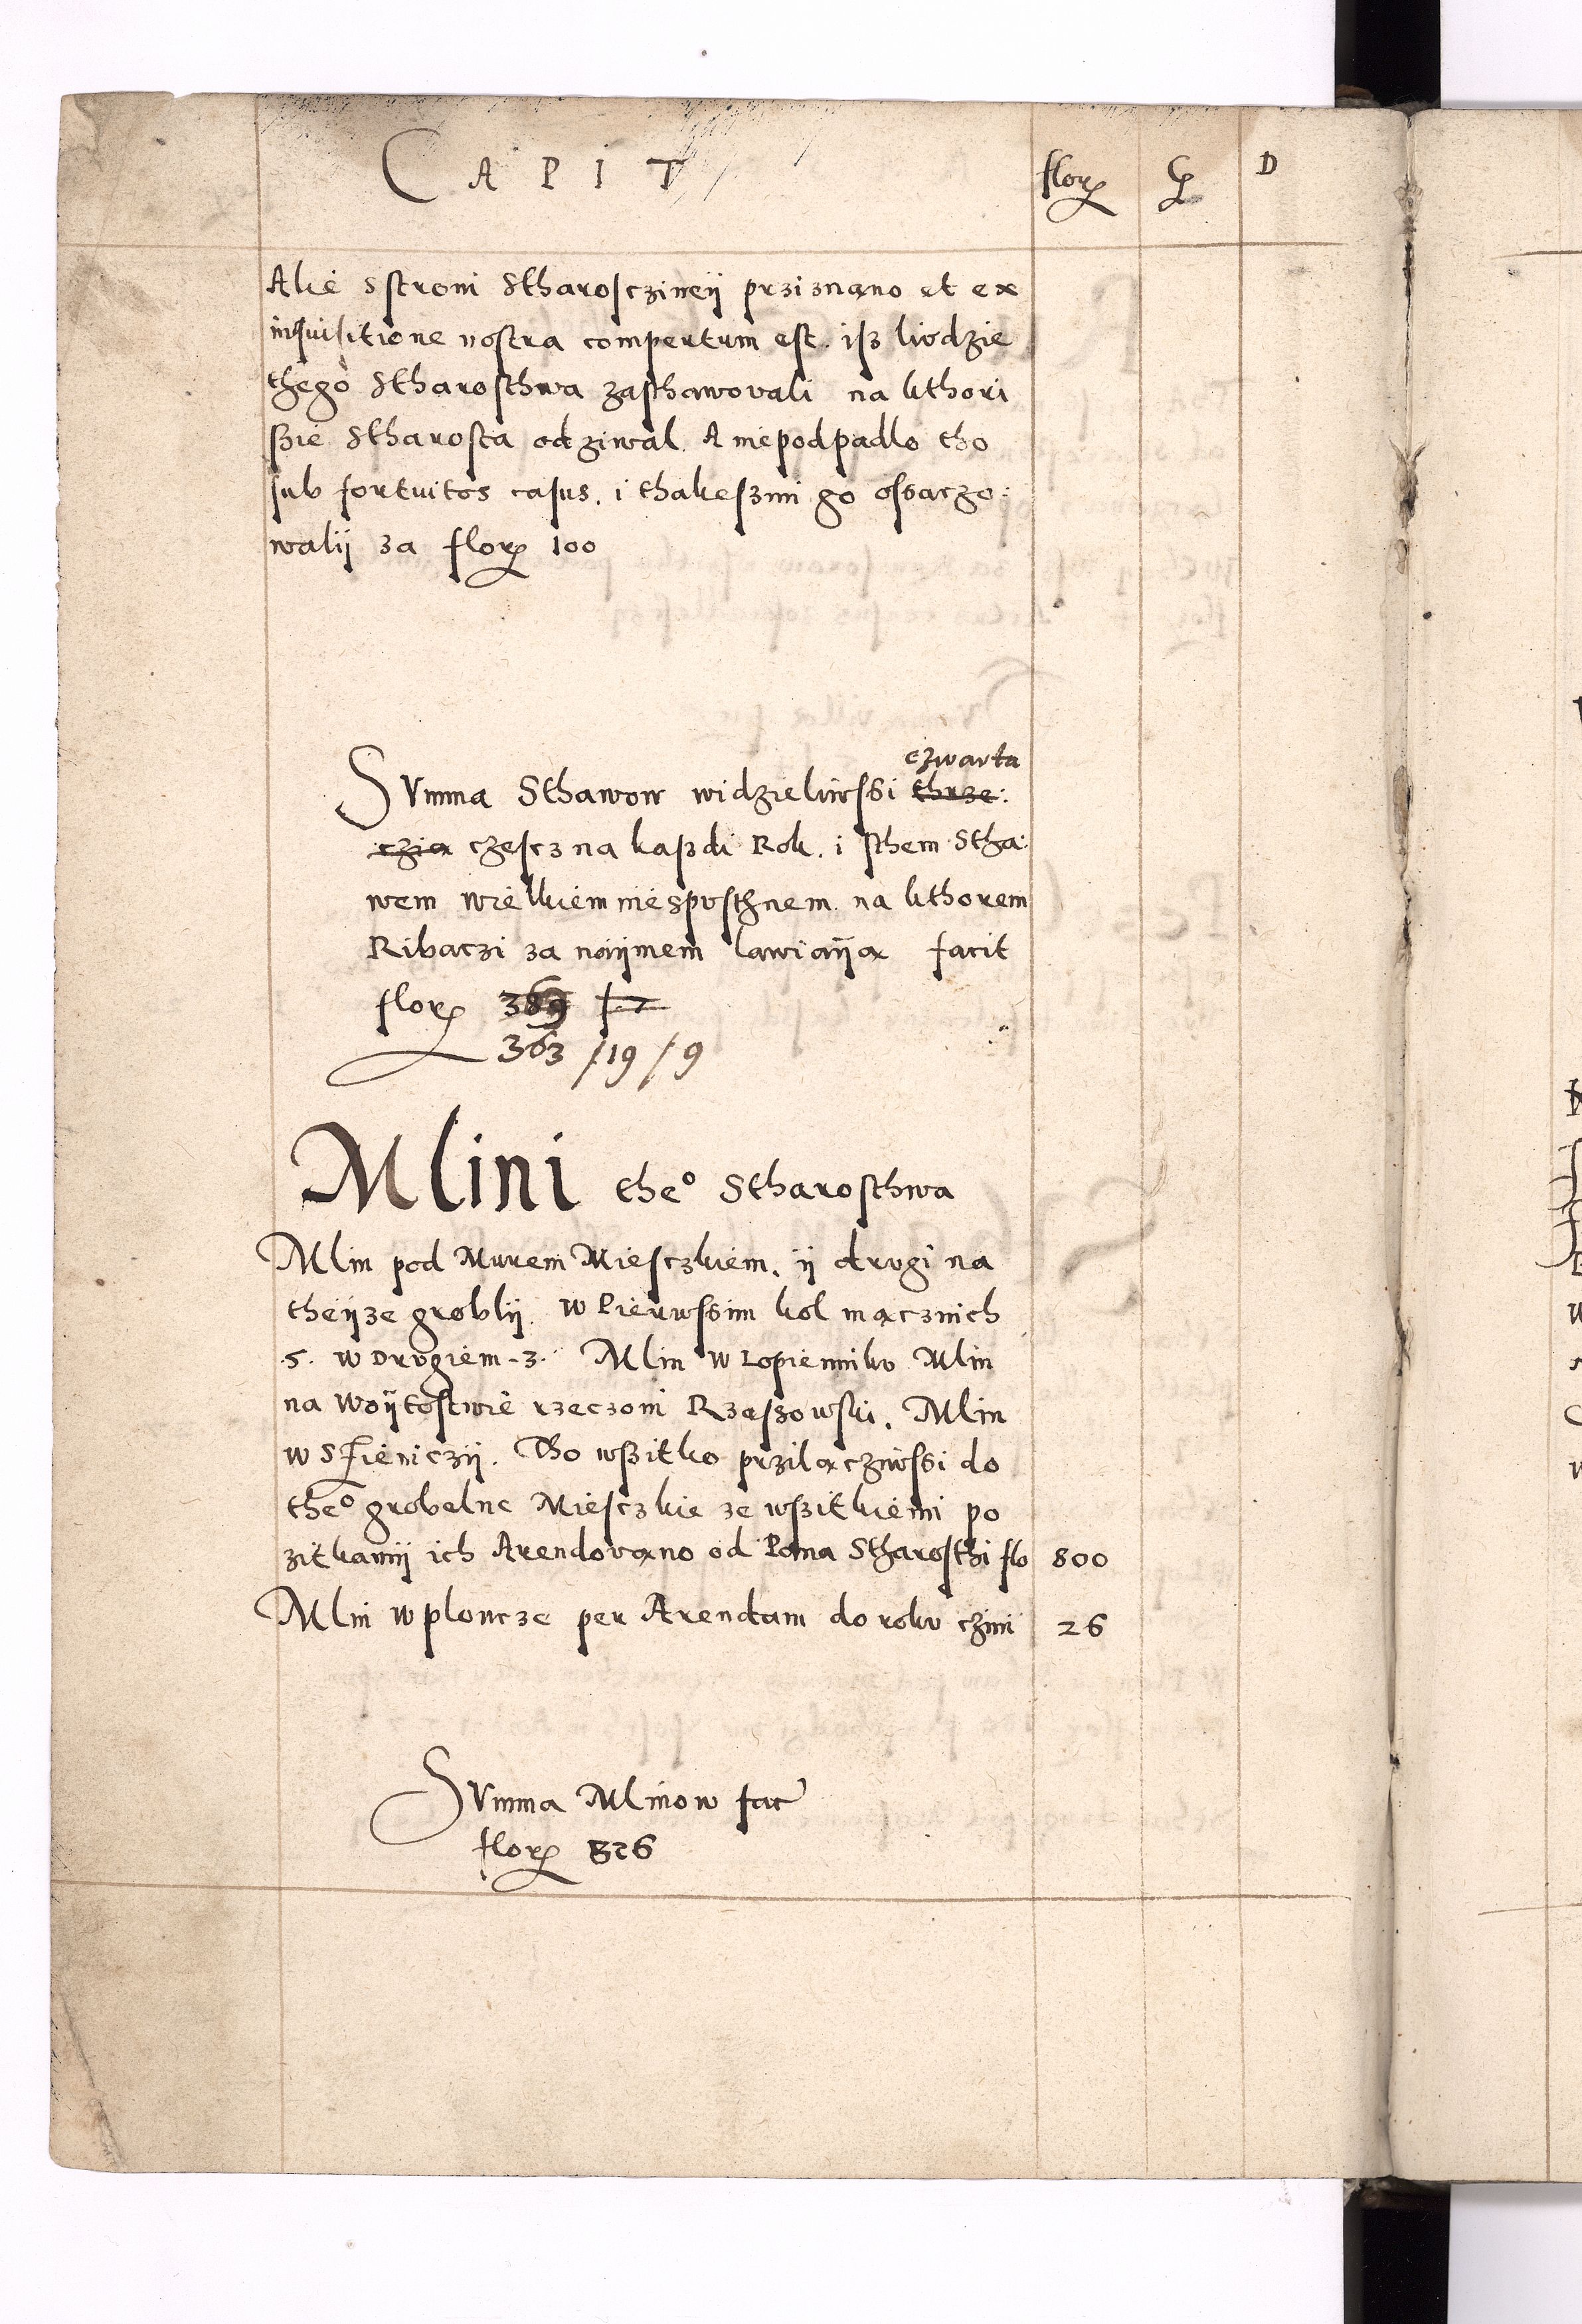 CAPIT florꝝ Gꝝ D
Alie s stroni Stharosczineÿ prziznąno et ex
inquisitione nostra compertum est. isz liodzie
thego Stharosthwa zasthawowali na kthori
szie Starosta odziwal. A niepodpadlo tho
sub fortuitos casus. i thakeszmi go ossaczo:
walÿ za florꝝ 100
czwarta
Summa Sthawow widzieliwssi thrze:
czią czescz na kaszdi Rok. i sthem Stha:
wem wielkiem niespusthnem na kthorem
Ribaczi za naÿmem lawiaÿą facit
florꝝ 389
363 / 19 / 9
Mlini the° Stharosthwa
Mlin pod Murem Miesczkiem. ÿ drugi na
theÿze groblÿ. W Pierwssim kol mącznich
.5. w Drugiem .3. Mlin w Lopienniku Mlin
na Woÿtostwie rzeczoni Rzeszowski. Mlin
w Siеniczÿ. Tho wszitko przilącziwssi do
the° grobelne Miesczkie ze wszitkiemi po
zitkamÿ ich Arendowano od Pana Sthrosthi flo 800
Mlin w plоncze per Arendam do roku czini 26
Summa Mlinow fac
florꝝ 826